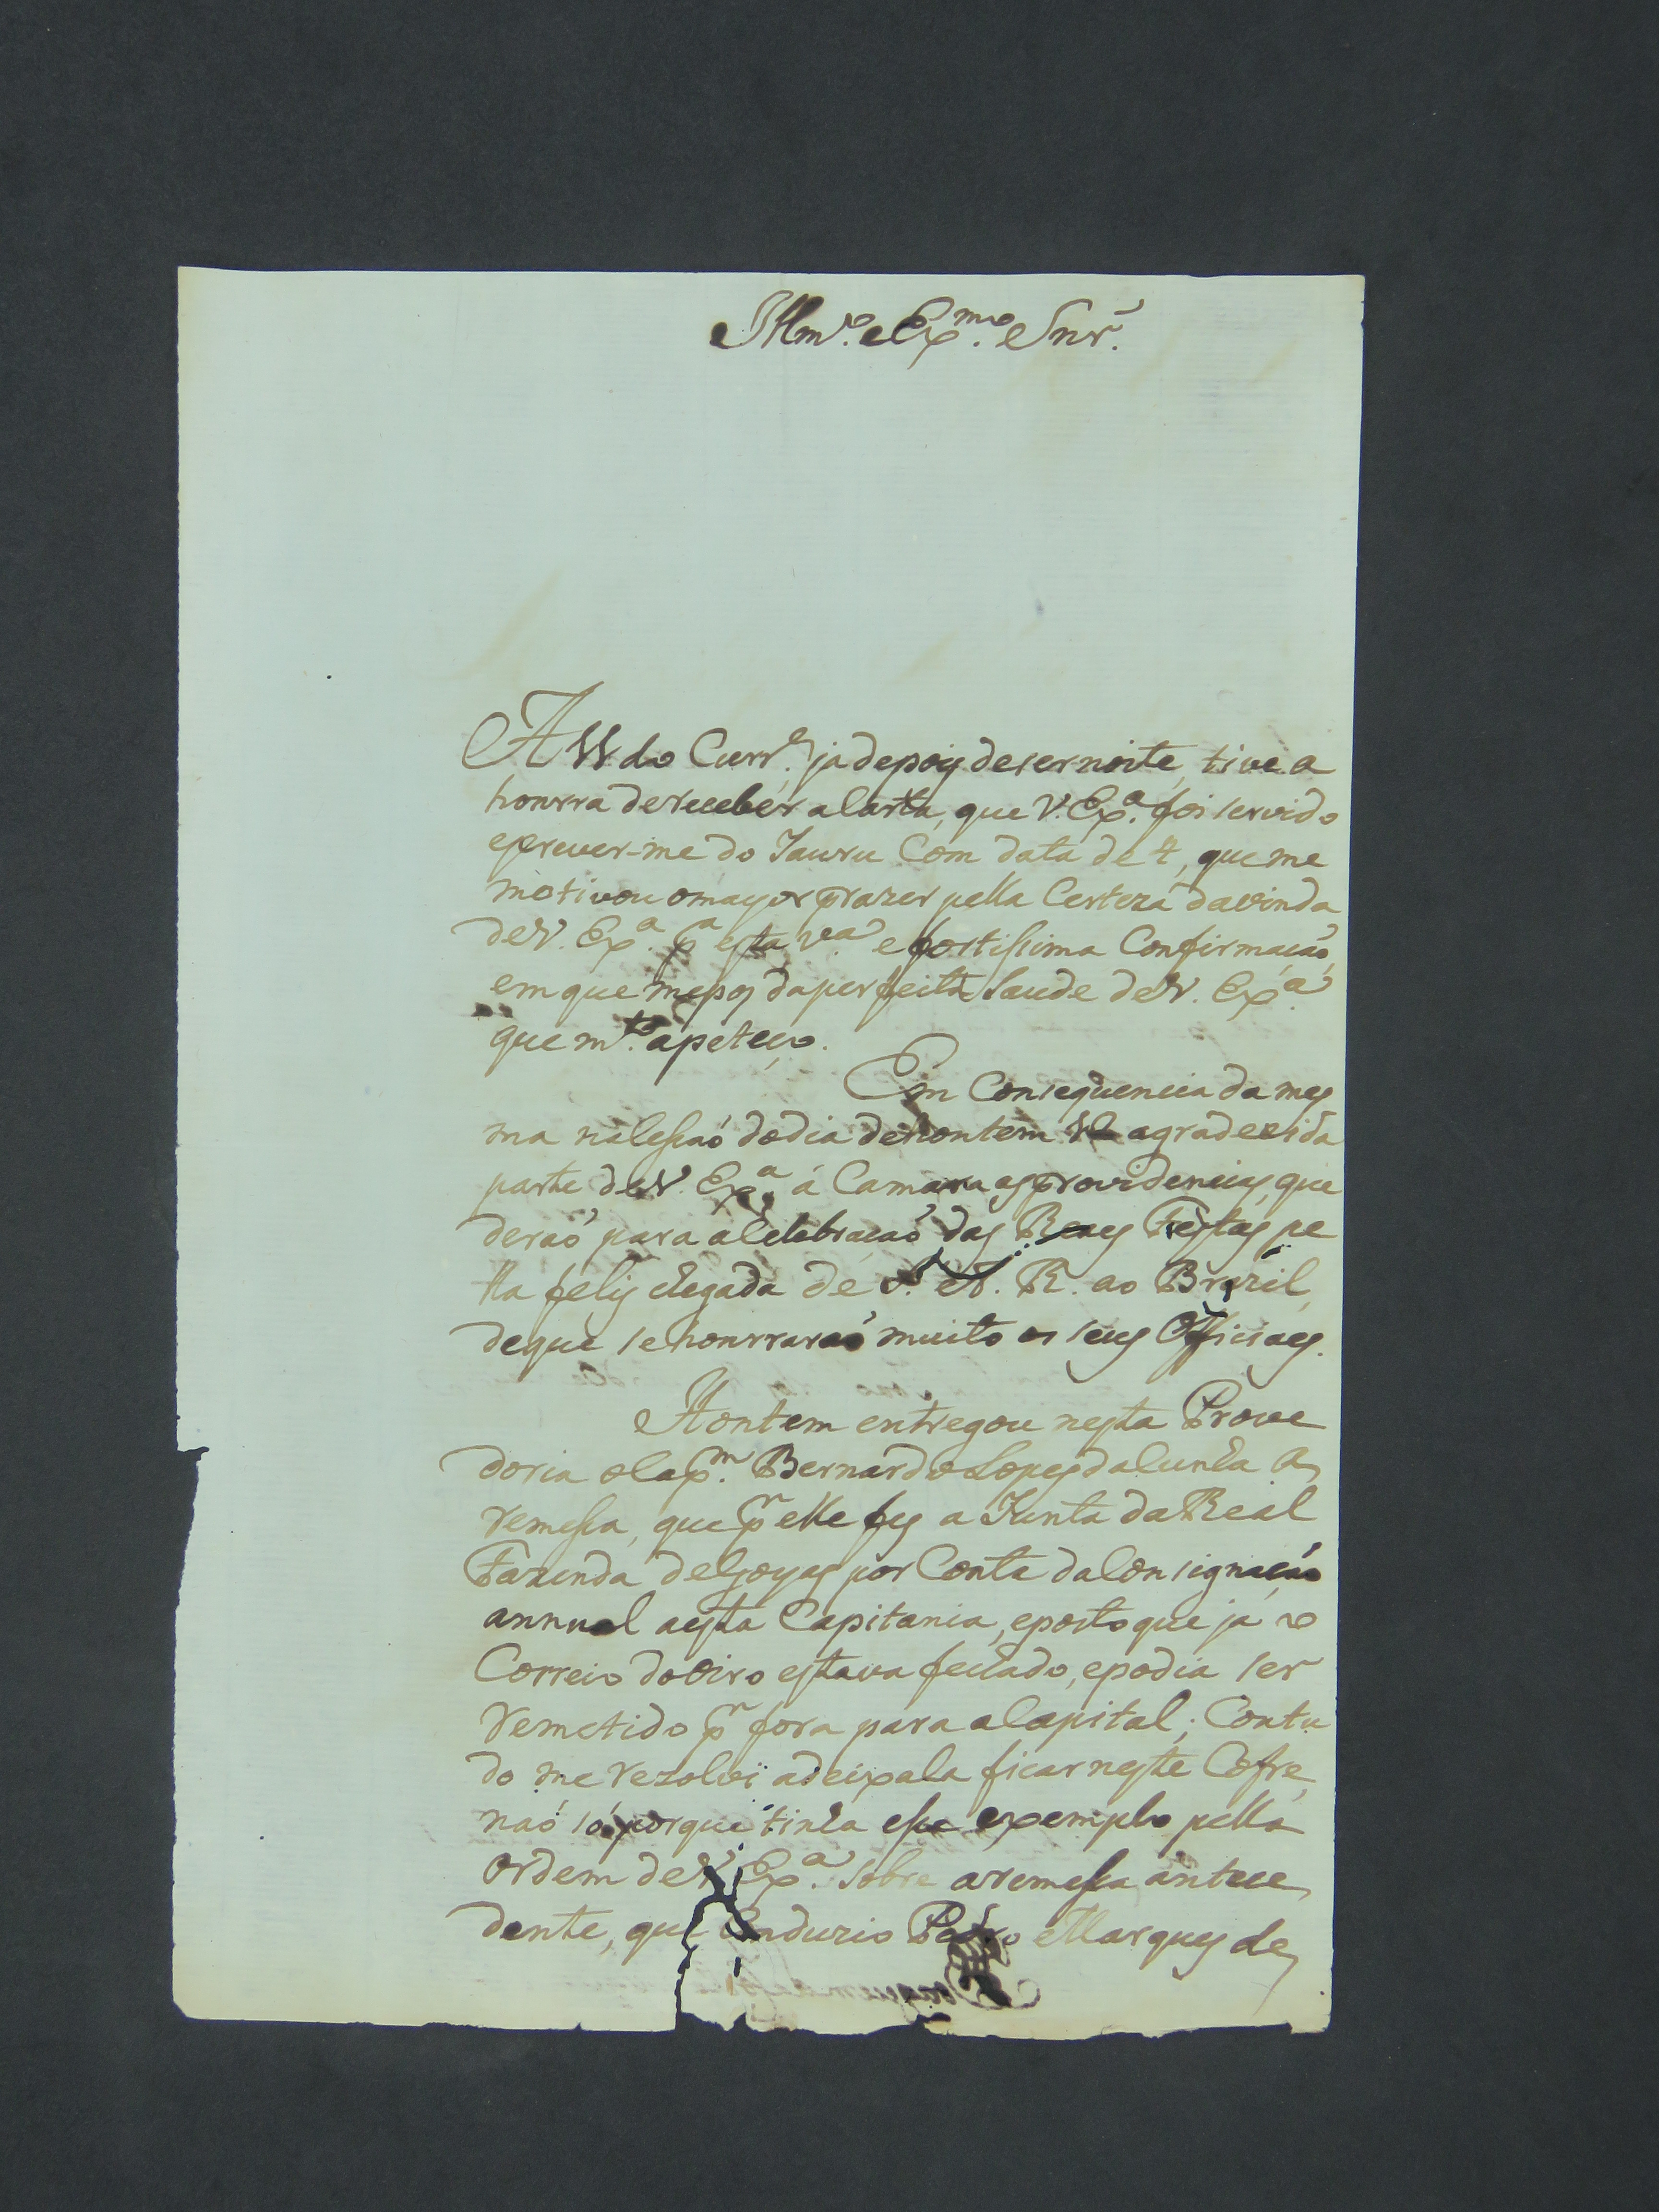 Illmo. e Exmo. Snr.
A 11 do Corre. ja depois de ser noite, tive a
honrra de receber a Carta, que V. Exa. foi servido
escrever-me do Jauru Com data de 4, que me
motivou o mayor prazer pella Certeza da vinda
de V. Exa. pa esta Va. e fortissima Confirmação,
em que me pos da perfeita Saude de V. Exa.
que mto. apeteço.
Em Consequencia da mes
ma na Cessaõ do dia de hontem agradecida
parte de V. Exa. á Camara as providencias, que
deraõ para a Celebraçaõ das Reaes Festas pe
lla felis chegada de S. A. R. ao Brazil,
de que se honrraraõ muito os seus Officiaes.
Hontem entregou nesta Prove
doria o Capm. Bernardo Lopes da Cunha a
remessa, que pr elle fes a Junta da Real
Fazenda de Goyas por Conta da Consignação
annual a esta Capitania, e posto que já o
Correio do Oiro estava fechado, e podia ser
remetido pr fora para a Capital; Contu
do me rezolvi a deixala ficar neste Cofre,
naõ só porque tinha esse exemplo pella
Ordem de V. Exa. Sobre a remessa antece
dente, que Conduzio Pedro Marques de